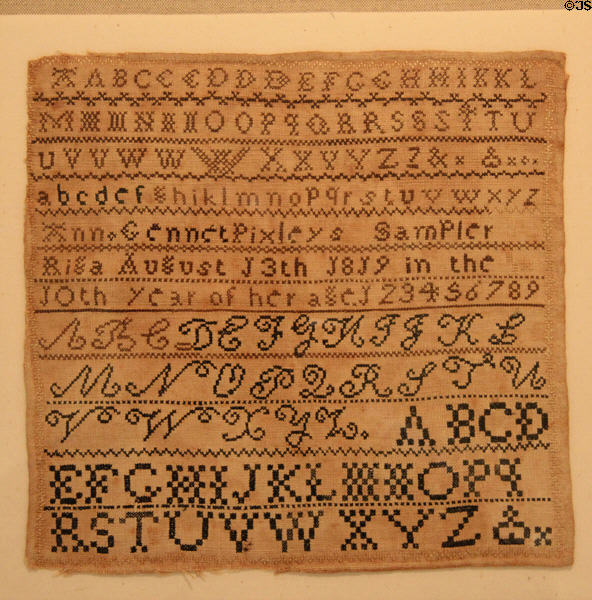 ©JS
A A B C C C C D D D E F G G H H I K K L
M M M N N N O O P P Q Q R R S S S T T U
U V V V W W W X X X Y Y Z Z & x
a b c d e f g h i k l m n o p q r s t u v w x y z
Ann Gennet Pixleys Sampler
Riga August 13th 1819 in the
10th year of her age 1 2 3 4 5 6 7 8 9
A B C D E F G H I J K L
M N O P Q R S T U
V W X Y Z. A B C D
E F G H I J K L M N O P Q
R S T U V W X Y Z & x